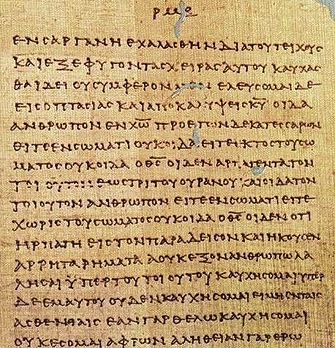 ρμε
ΕΝϹΑΡΓΑΝΗΕΧΑΛΑϹΘΗΝΔΙΑΤΟΥΤΕΙΧΟΥϹ
ΚΑΙΕΞΕΦΥΓΟΝΤΑϹΧΕΙΡΑϹΑΥΤΟΥΚΑΥΧΑϹ
ΘΑΙΔΕΙΟΥϹΥΜΦΕΡΟΝΜΕΝΕΛΕΥϹΟΜΑΙΔΕ
ΕΙϹΟΠΤΑϹΙΑϹΚΑΙΑΠΟΚΑΛΥΨΕΙϹΚ̅Υ̅ΟΙΔΑ
ΑΝΘΡΩΠΟΝΕΝΧ̅Ω̅ΠΡΟΕΤΩΝΔΕΚΑΤΕϹϹΑΡΩΝ
ΕΙΤΕΕΝϹΩΜΑΤΙΟΥΚΟΙΔΑΕΙΤΕΕΚΤΟϹΤΟΥϹΩ
ΜΑΤΟϹΟΥΚΟΙΔΑΟΘ̅Ϲ̅ΟΙΔΕΝΑΡΠΑΓΕΝΤΑΤΟΝ
ΤΟΙΟΥΤΟΝΕΩϹΤΡΙΤΟΥΟΥΡΑΝΟΥΚΑΙΟΙΔΑΤΟΝ
ΤΟΙΟΥΤΟΝΑΝΘΡΩΠΟΝΕΙΤΕΕΝϹΩΜΑΤΙΕΙΤΕ
ΧΩΡΙϹΤΟΥϹΩΜΑΤΟϹΟΥΚΟΙΔΑΟΘ̅Ϲ̅ΟΙΔΕΝΟΤΙ
ΗΡΠΑΓΗΕΙϹΤΟΝΠΑΡΑΔΕΙϹΟΝΚΑΙΗΚΟΥϹΕΝ
ΑΡΡΗΤΑΡΗΜΑΤΑΑΟΥΚΕΞΟΝΑΝΘΡΩΠΩΛΑ
ΛΗϹΑΙΫΠΕΡΤΟΥΤΟΙΟΥΤΟΥΚΑΥΧΗϹΟΜΑΙΥΠΕΡ
ΔΕΕΜΑΥΤΟΥΟΥΔΕΝΚΑΥΧΗϹΟΜΑΙΕΙΜΗΕΝΤΑΙϹ
ΑϹΘΕΝΕΙΑΙϹΕΑΝΓΑΡΘΕΛΩΚΑΥΧΗϹΟΜΑΙ
ΟΥΚΕϹΟΜΑΙΑΦΡΩΝΑΛΗΘΕΙΑΝΓΑΡΕΡΩ